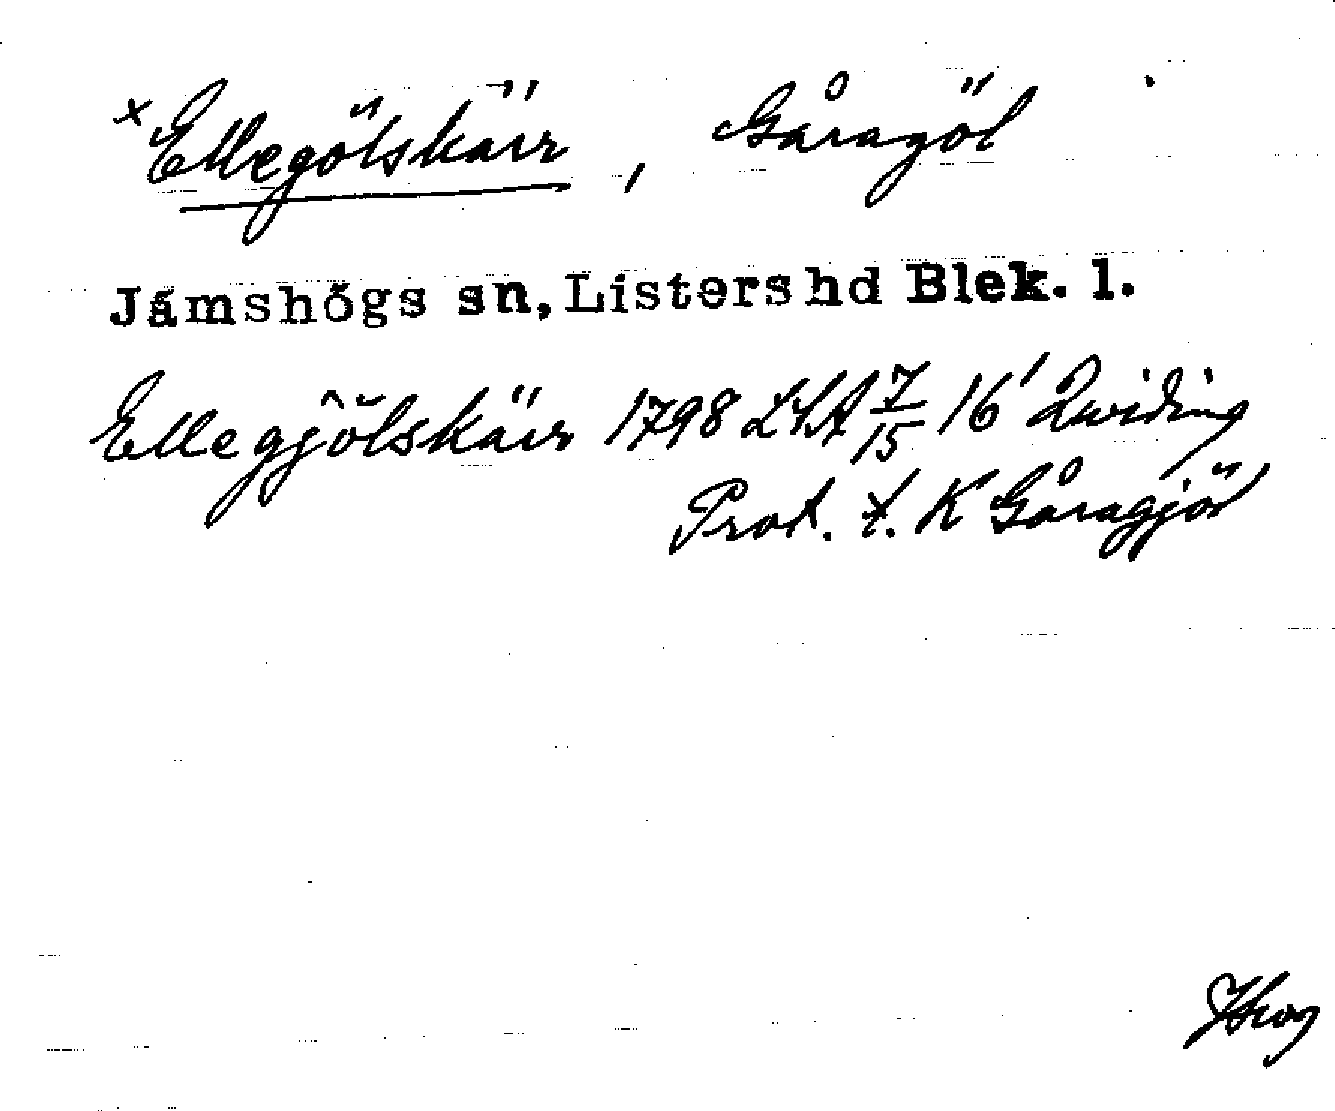 ×Ellegölskärr, Gåragöl
Jämshögs sn, Listers hd Blek. l.
Ellegjölskärr 1798 LSA 7/15 16' Qwiding
Prot. t. K Gåragjöl